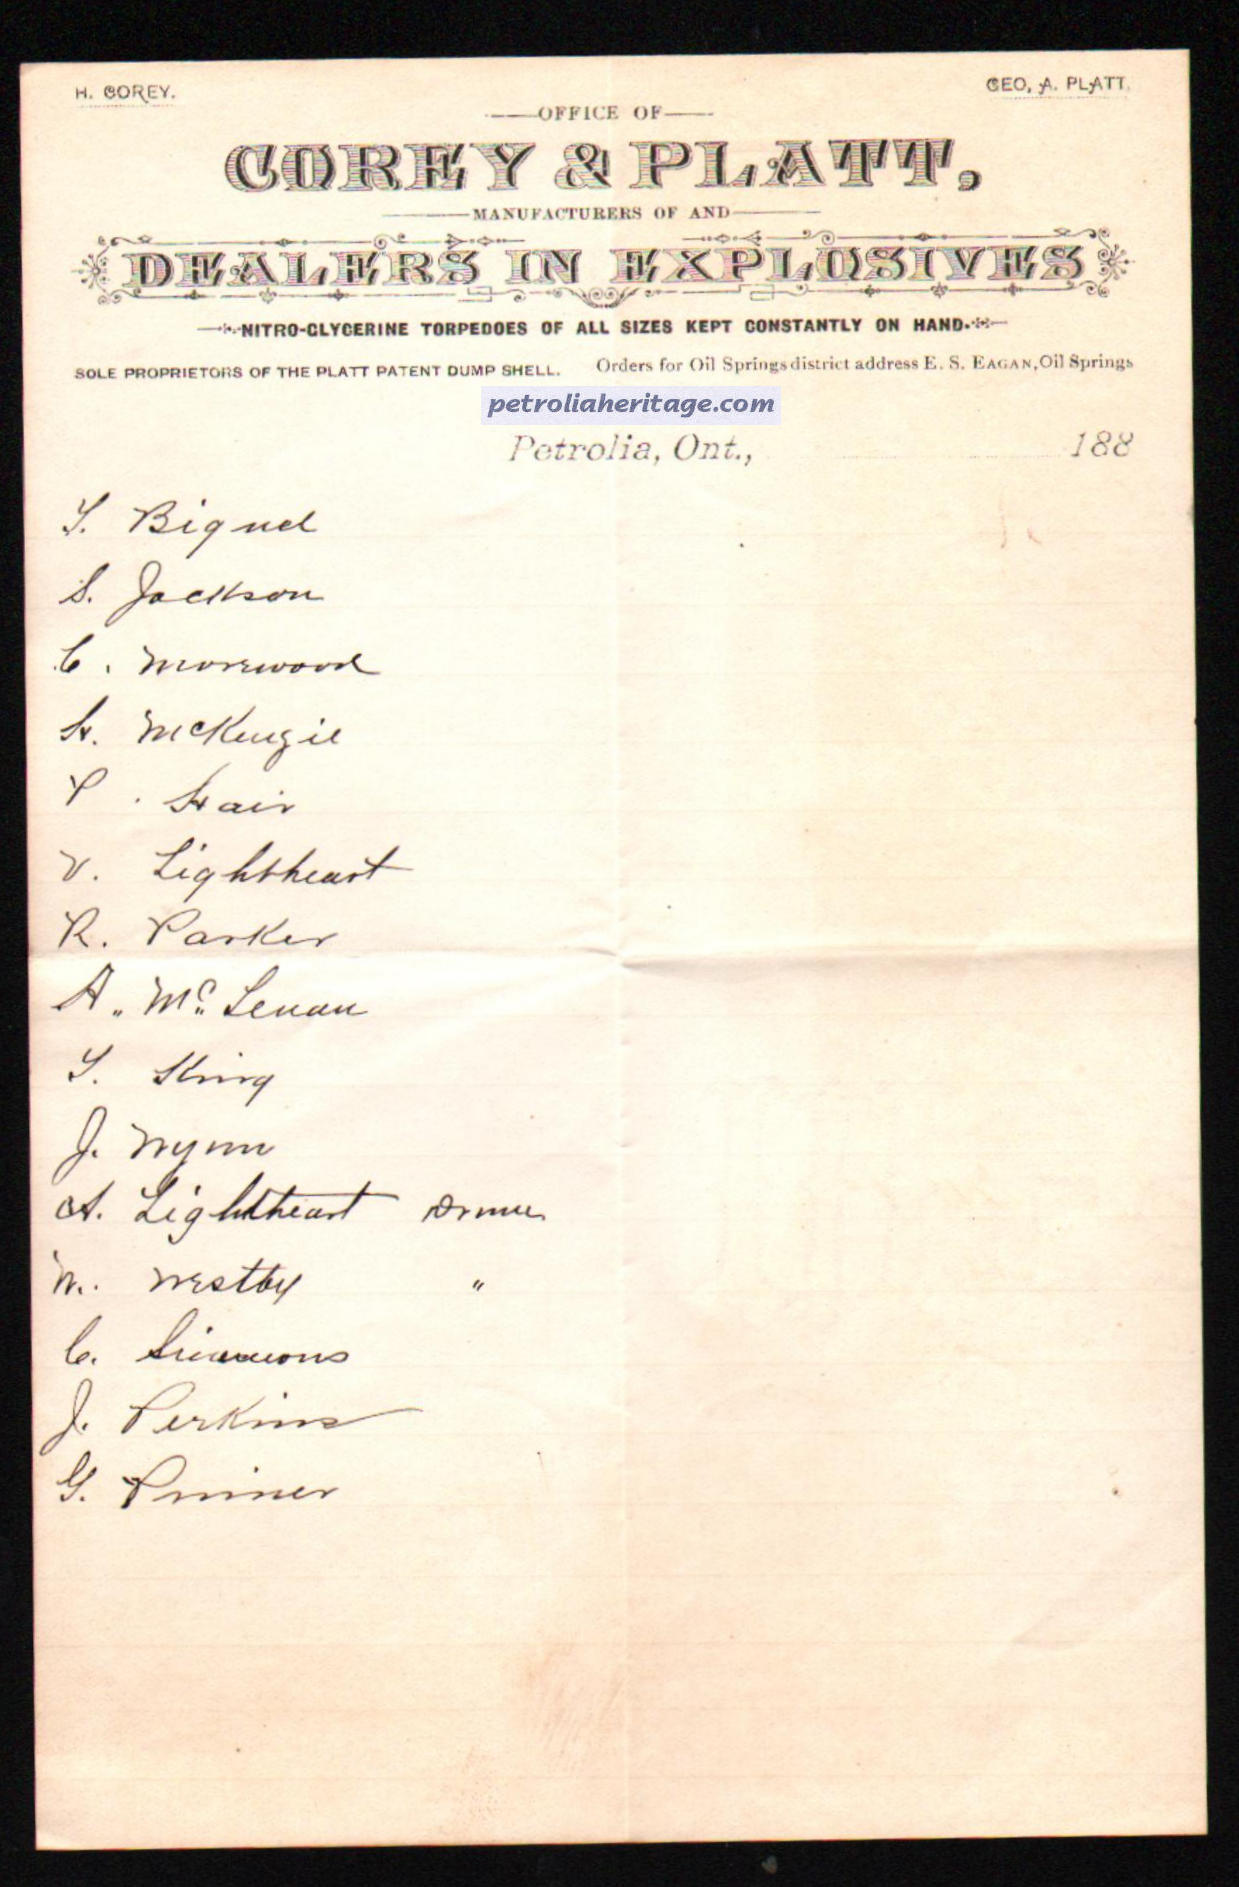 H. COREY.
GEO. A. PLATT.
OFFICE OF
COREY & PLATT,
MANUFACTURERS OF AND
DEALERS IN EXPLOSIVES
NITRO-GLYCERINE TORPEDOES OF ALL SIZES KEPT CONSTANTLY ON HAND.
SOLE PROPRIETORS OF THE PLATT PATENT DUMP SHELL.
Orders for Oil Springs district address E. S. EAGAN, Oil Springs
petroliaheritage.com
Petrolia, Ont., 188
Bignel
S. Jackson
C. Morewood
H. McKenzie
P. Hair
V. Lightheart
R. Parker
A. McLenan
King
J. Wynn
A. Lightheart
W. Westby "
C. Simmons
J. Perkins
G. Primer